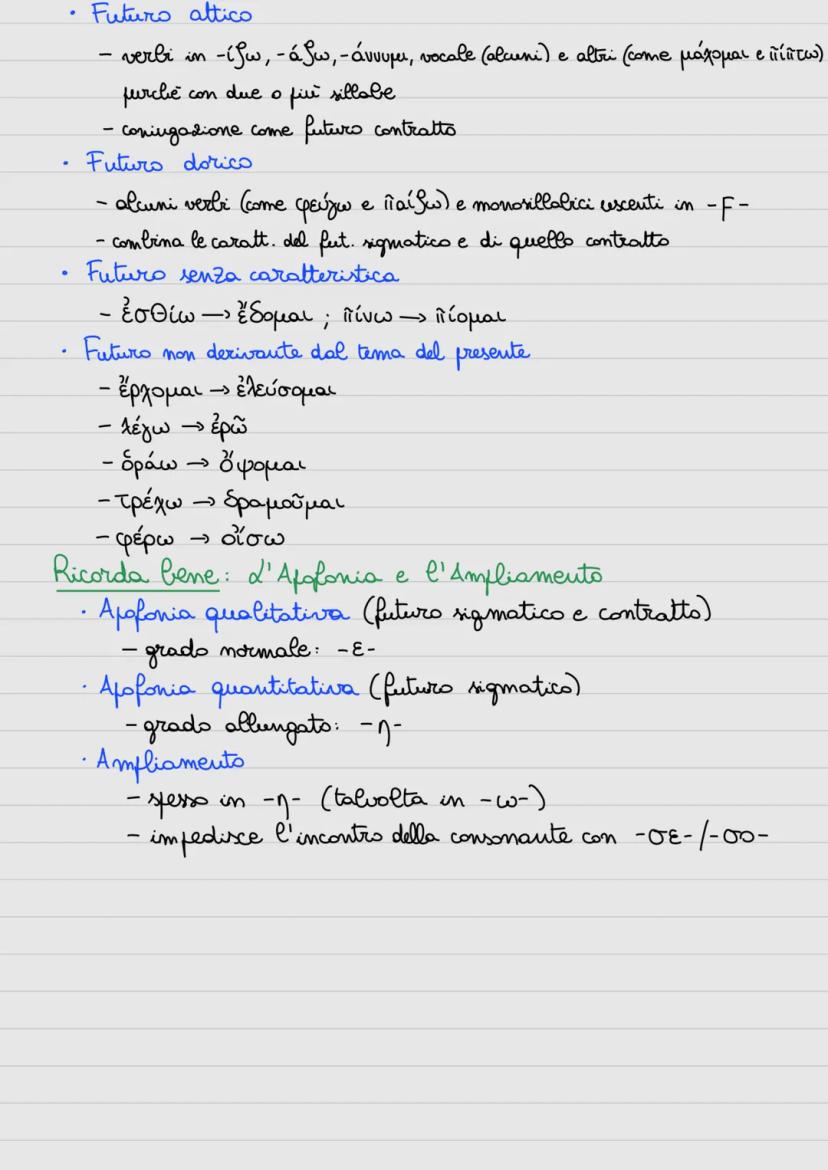 • Futuro attico
– verbi in -ίζω, -άζω, -άννυμι, vocale (alcuni) e altri (come μάχομαι e πίπτω)
purché con due o più sillabe
– coniugazione come futuro contratto
• Futuro dorico
– alcuni verbi (come φεύγω e παίζω) e monosillabici uscenti in -F-
– combina le caratt. del fut. sigmatico e di quello contratto
• Futuro senza caratteristica
– ἐσθίω → ἔδομαι ; πίνω → πίομαι
• Futuro non derivante dal tema del presente
– ἔρχομαι → ἐλεύσομαι
– λέγω → ἐρῶ
– ὁράω → ὄψομαι
– τρέχω → δραμοῦμαι
– φέρω → οἴσω
Ricorda bene: L'Apofonia e l'Ampliamento
• Apofonia qualitativa (futuro sigmatico e contratto)
– grado normale: -ε-
• Apofonia quantitativa (futuro sigmatico)
– grado allungato: -η-
• Ampliamento
– spesso in -η- (talvolta in -ω-)
– impedisce l'incontro della consonante con -σε-/-σο-